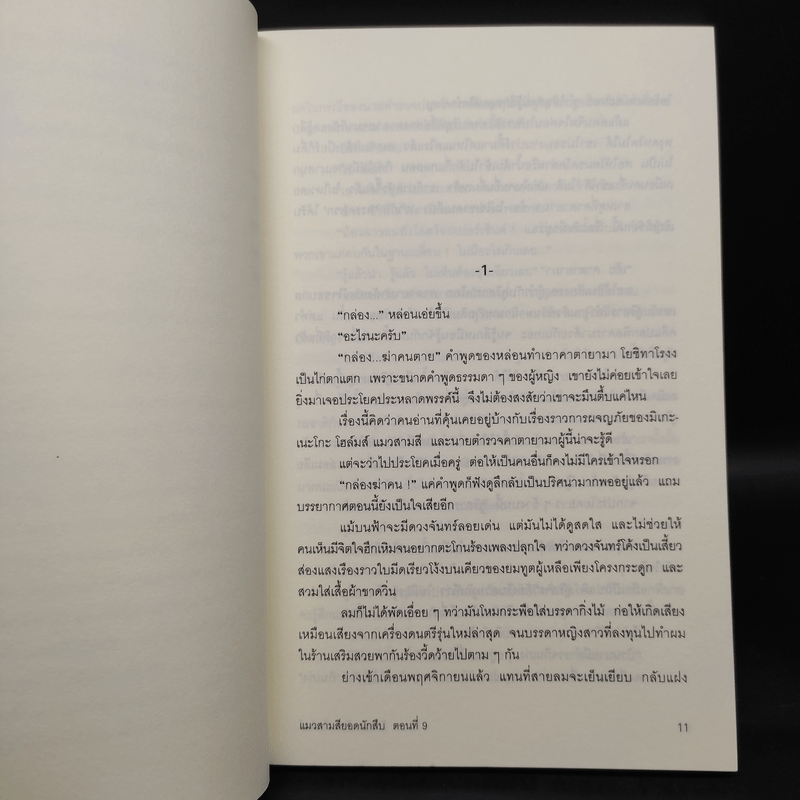 -1-
“กล่อง...” หล่อนเอ่ยขึ้น
“อะไรนะครับ”
“กล่อง...ฆ่าคนตาย” คำพูดของหล่อนทำเอาคาตายามา โยชิทาโรงง
เป็นไก่ตาแตก เพราะขนาดคำพูดธรรมดา ๆ ของผู้หญิง เขายังไม่ค่อยเข้าใจเลย
ยิ่งมาเจอประโยคประหลาดพรรค์นี้ จึงไม่ต้องสงสัยว่าเขาจะมึนตึ้บแค่ไหน
เรื่องนี้คิดว่าคนอ่านที่คุ้นเคยอยู่บ้างกับเรื่องราวการผจญภัยของมิเกะ-
เนะโกะ โฮล์มส์ แมวสามสี และนายตำรวจคาตายามาผู้นี้น่าจะรู้ดี
แต่จะว่าไปประโยคเมื่อครู่ ต่อให้เป็นคนอื่นก็คงไม่มีใครเข้าใจหรอก
“กล่องฆ่าคน !” แค่คำพูดก็ฟังดูลึกลับเป็นปริศนามากพออยู่แล้ว แถม
บรรยากาศตอนนี้ยังเป็นใจเสียอีก
แม้บนฟ้าจะมีดวงจันทร์ลอยเด่น แต่มันไม่ได้ดูสดใส และไม่ช่วยให้
คนเห็นมีจิตใจฮึกเหิมจนอยากตะโกนร้องเพลงปลุกใจ ทว่าดวงจันทร์โค้งเป็นเสี้ยว
ส่องแสงเรืองราวใบมีดเรียวโง้งบนเคียวของยมทูตผู้เหลือเพียงโครงกระดูก และ
สวมใส่เสื้อผ้าขาดวิ่น
ลมก็ไม่ได้พัดเอื่อย ๆ ทว่ามันโหมกระพือใส่บรรดากิ่งไม้ ก่อให้เกิดเสียง
เหมือนเสียงจากเครื่องดนตรีรุ่นใหม่ล่าสุด จนบรรดาหญิงสาวที่ลงทุนไปทำผม
ในร้านเสริมสวยพากันร้องวี้ดว้ายไปตาม ๆ กัน
ย่างเข้าเดือนพฤศจิกายนแล้ว แทนที่สายลมจะเย็นเยียบ กลับแฝง
แมวสามสียอดนักสืบ ตอนที่ 9
11